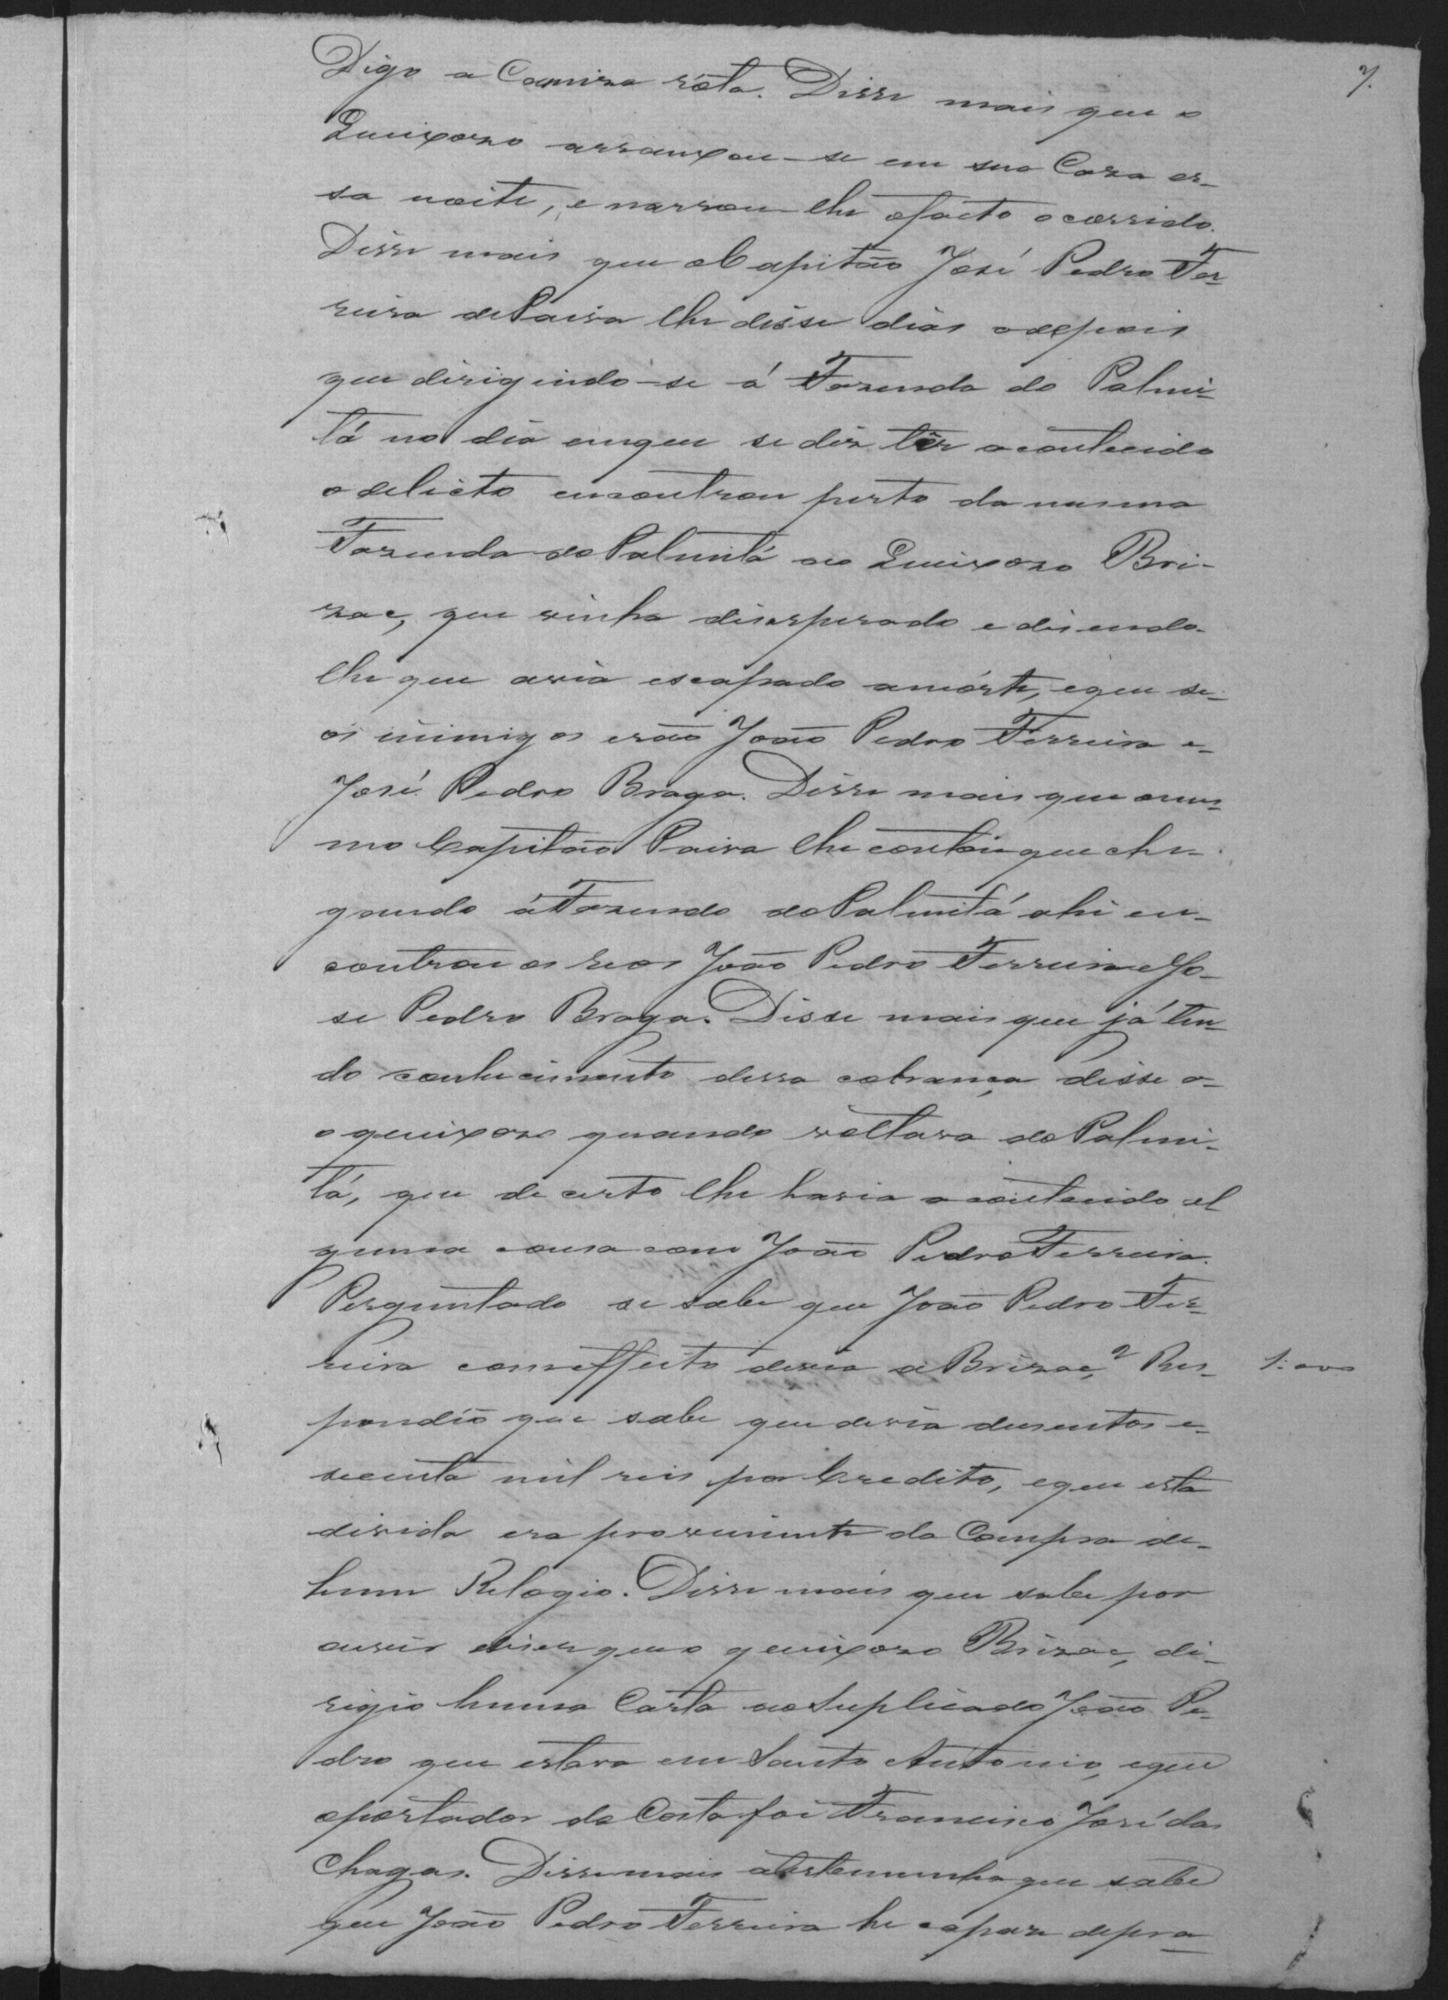 7.
Digo a Camiza róta. Disse mais que o
Queixozo arranxou-se em sua Caza es-
sa noite, e narrou lhe ofacto ocorrido.
Disse mais que oCapitão José Pedro Fer-
reira dePaiva lhe disse dias adepois
que dirigindo-se á Fazenda do Palmi-
tá no dia emque se diz têr acontecido
o delicto encontrou perto da mesma
Fazenda doPalmitá ao Queixozo Bri-
zac, que vinha disesperado edisendo-
lhe que avia escapado amórte, eque se-
os inimigos erão João Pedro Ferreira e-
José Pedro Braga. Disse mais que omes-
mo Capitão Paiva lhe contou que che-
gando áFazenda doPalmitá ahi en-
controu os reos João Pedro Ferreira eJo-
se Pedro Braga. Disse mais que já ten-
do conhecimento dessa cobrança disse a-
o queixozo quando voltava doPalmi-
tá, que de certo lhe havia acontecido al
guma cousa com João Pedro Ferreira.
Perguntado se sabe que João Pedro Fer-
reira comeffeito devia a Brizac? Res-
pondio que sabe que devia dusentos e-
secenta mil reis por Credito, eque esta
divida era proveniente da Compra de-
hum Relogio. Disse mais que sabe por
ouvir diser queo queixozo Brizac, di-
rigio huma Carta aoSuplicado João Pe-
dro que estava em Santo Antonio, eque
oportador da Carta foi Francisco José das
Chagas. Disse mais atestemunha que sabe
que João Pedro Ferreira he capaz depra-